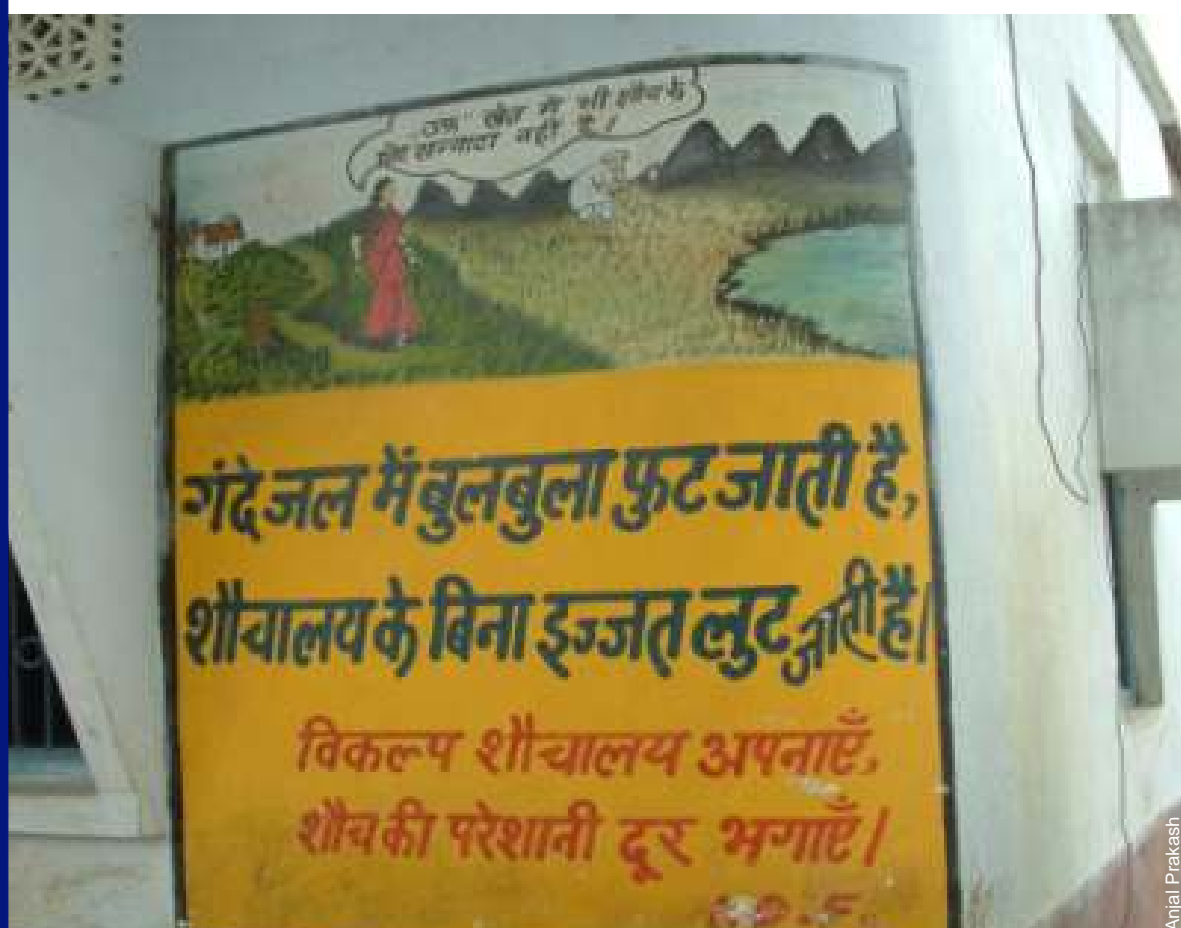 उफ" खेत में भी शौच के
लिए सन्नाटा नहीं है।
गंदे जल में बुलबुला फुट जाती है,
शौचालय के बिना इज्जत लुट जाती है।
विकल्प शौचालय अपनाएँ,
शौच की परेशानी दूर भगाएँ।
Anjal Prakash